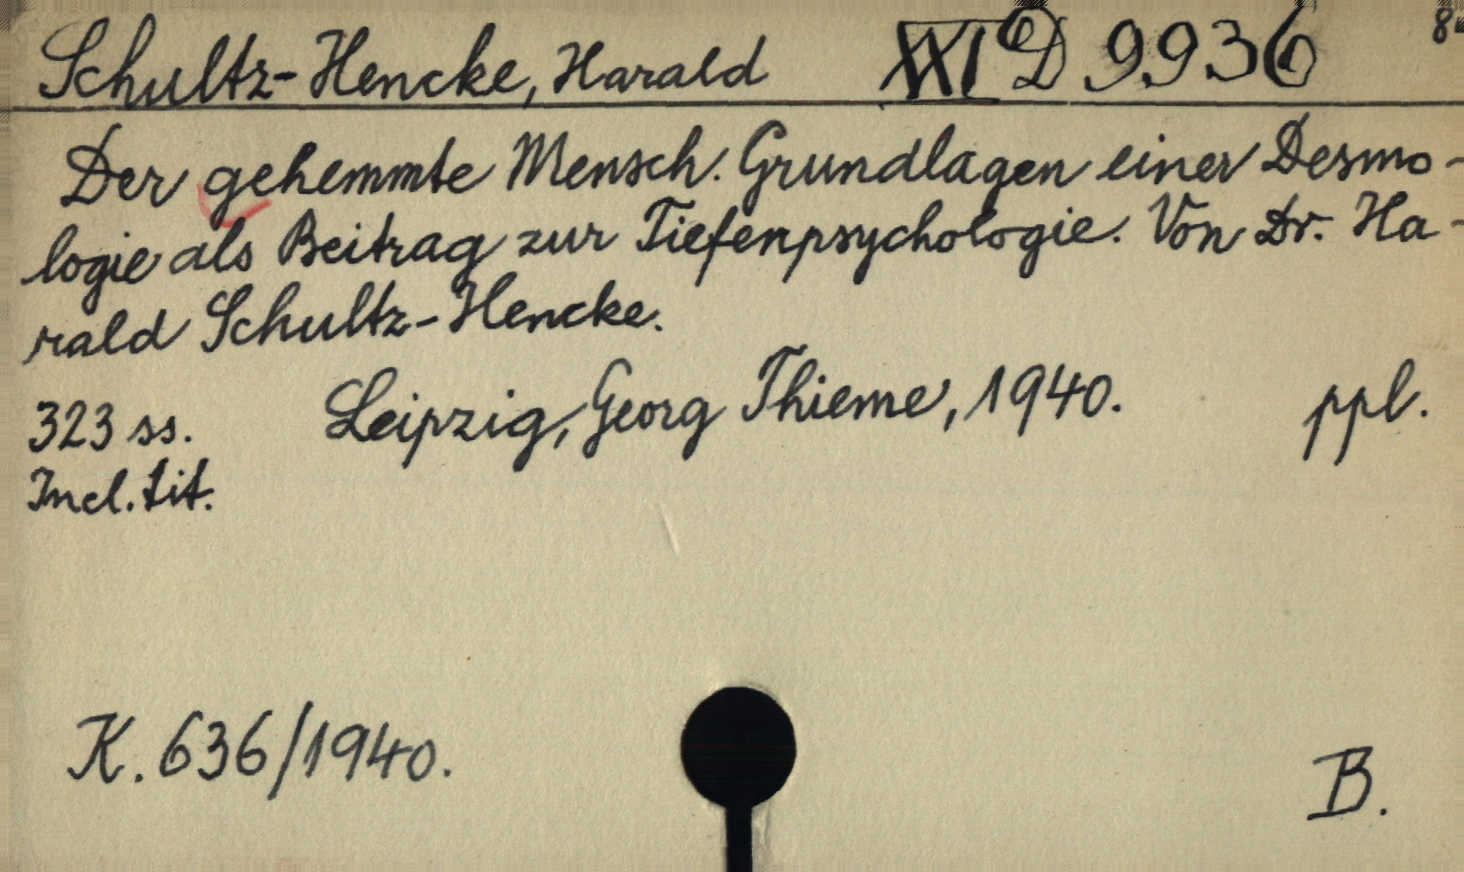 Schultz-Hencke, Harald XXI D 9936
Der gehemmte Mensch. Grundlagen einer Desmo-
logie als Beitrag zur Tiefenpsychologie. Von Dr. Ha-
rald Schultz-Hencke.
323 ss. Leipzig, Georg Thieme, 1940. ppl.
Incl. tit.
K. 636/1940.
B.